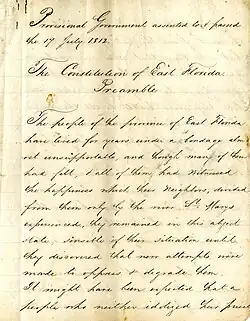 Provisional Government assented to & passed
the 17 July 1812.
The Constitution of East Florida
Preamble
The people of the province of East Florida
have lived for years under a bondage alm
ost unsupportable, and though many of them
had felt, & all of them had witnessed
the happiness which their Neighbors, divided
from them only by the river St. Marys
experienced, they remained in this abject
state, sensible of their situation until
they discovered that new attempts were
made to oppress & degrade them.
It might have been expected that a
people who neither idolized their priest